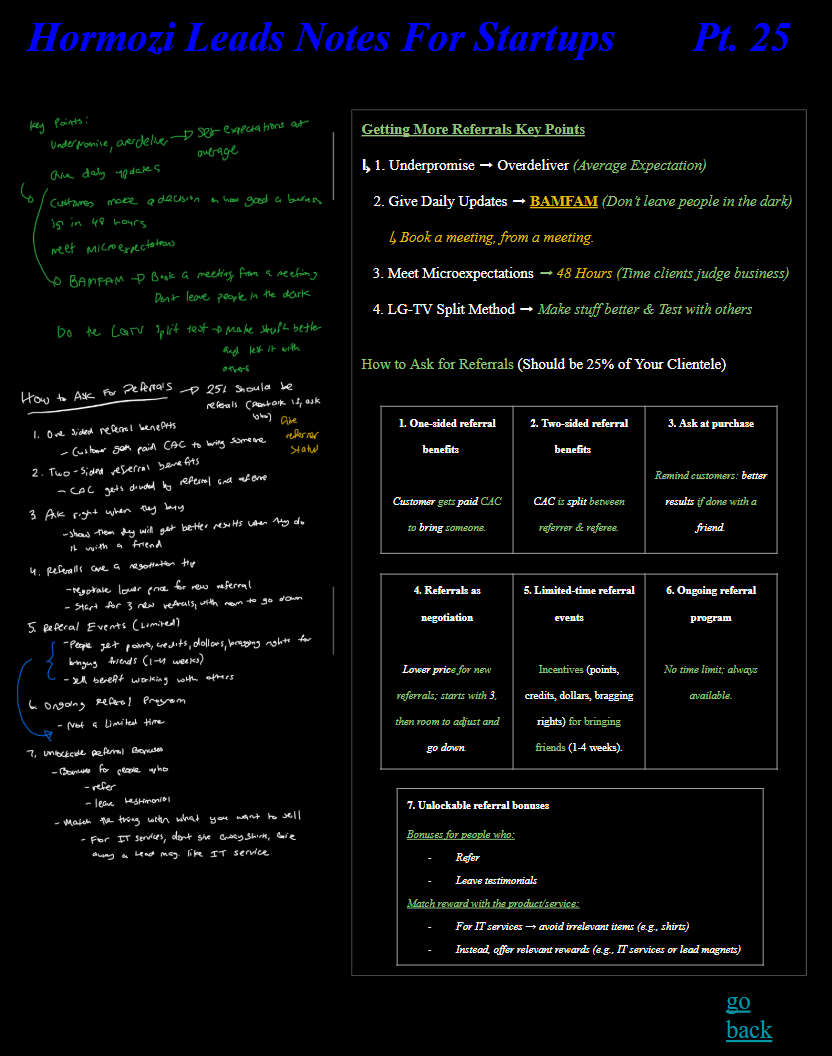 Hormozi Leads Notes For Startups Pt. 25
Key Points:
Underpromise, overdeliver → set expectations at
average
Give daily updates
Customers make a decision on how good a business
is in 48 hours
Meet Microexpectations
BAMFAM → Book a meeting, from a meeting
Dont leave people in the dark
Do the LGTV split test → Make stuff better
and test it with
others
How to Ask For Referrals → 25% should be
referals ( is, ask
who)
Give
referrer
status
1. One sided referral benefits
- Customer gets paid CAC to bring someone
2. Two-sided referral benefits
- CAC gets divided by referral and referee
3. Ask right when they buy
- Show them they will get better results when they do
it with a friend
4. Referalls are a negotiation tip
- negotiate lower price for new referral
- Start for 3 new referals, with room to go down
5. Referal Events (Limited)
- People get points, credits, dollars, bragging rights for
bringing friends (1-4 weeks)
- Sell benefit working with others
6. Ongoing Referal Program
- Not a limited time
7. Unlockable Referral Bonuses
- Bonuses for people who
- refer
- leave testimonial
- Match the thing with what you want to sell
- For IT services, dont give crazy shirts, Give
away a lead mag. like IT service
Getting More Referrals Key Points
↳ 1. Underpromise → Overdeliver (Average Expectation)
2. Give Daily Updates → BAMFAM (Don't leave people in the dark)
↳ Book a meeting, from a meeting.
3. Meet Microexpectations → 48 Hours (Time clients judge business)
4. LG-TV Split Method → Make stuff better & Test with others
How to Ask for Referrals (Should be 25% of Your Clientele)
1. One-sided referral
benefits
Customer gets paid CAC
to bring someone.
2. Two-sided referral
benefits
CAC is split between
referrer & referee.
3. Ask at purchase
Remind customers: better
results if done with a
friend.
4. Referrals as
negotiation
Lower price for new
referrals; starts with 3,
then room to adjust and
go down.
5. Limited-time referral
events
Incentives (points,
credits, dollars, bragging
rights) for bringing
friends (1-4 weeks).
6. Ongoing referral
program
No time limit; always
available.
7. Unlockable referral bonuses
Bonuses for people who:
- Refer
- Leave testimonials
Match reward with the product/service:
- For IT services → avoid irrelevant items (e.g., shirts)
- Instead, offer relevant rewards (e.g., IT services or lead magnets)
go
back